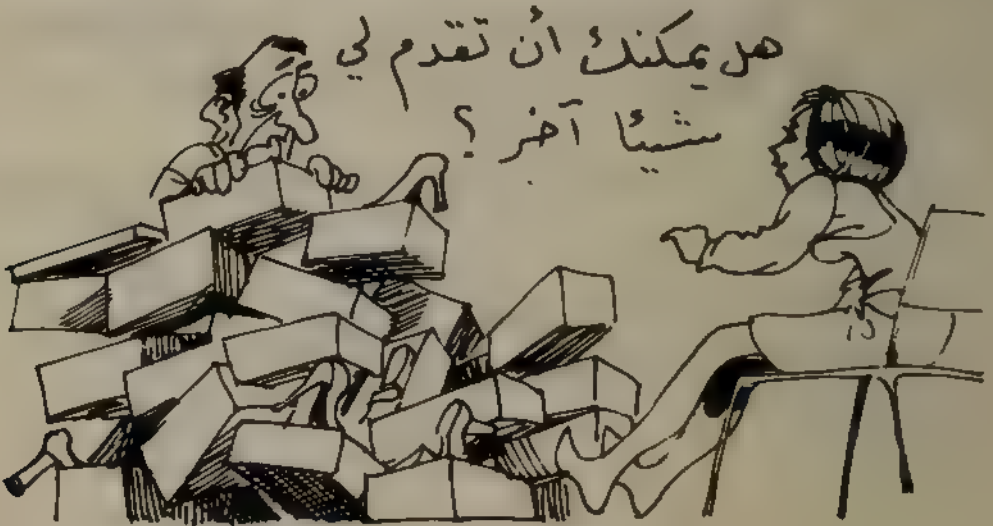 هل يمكنك أن تقدم لي
شيئا آخر ؟